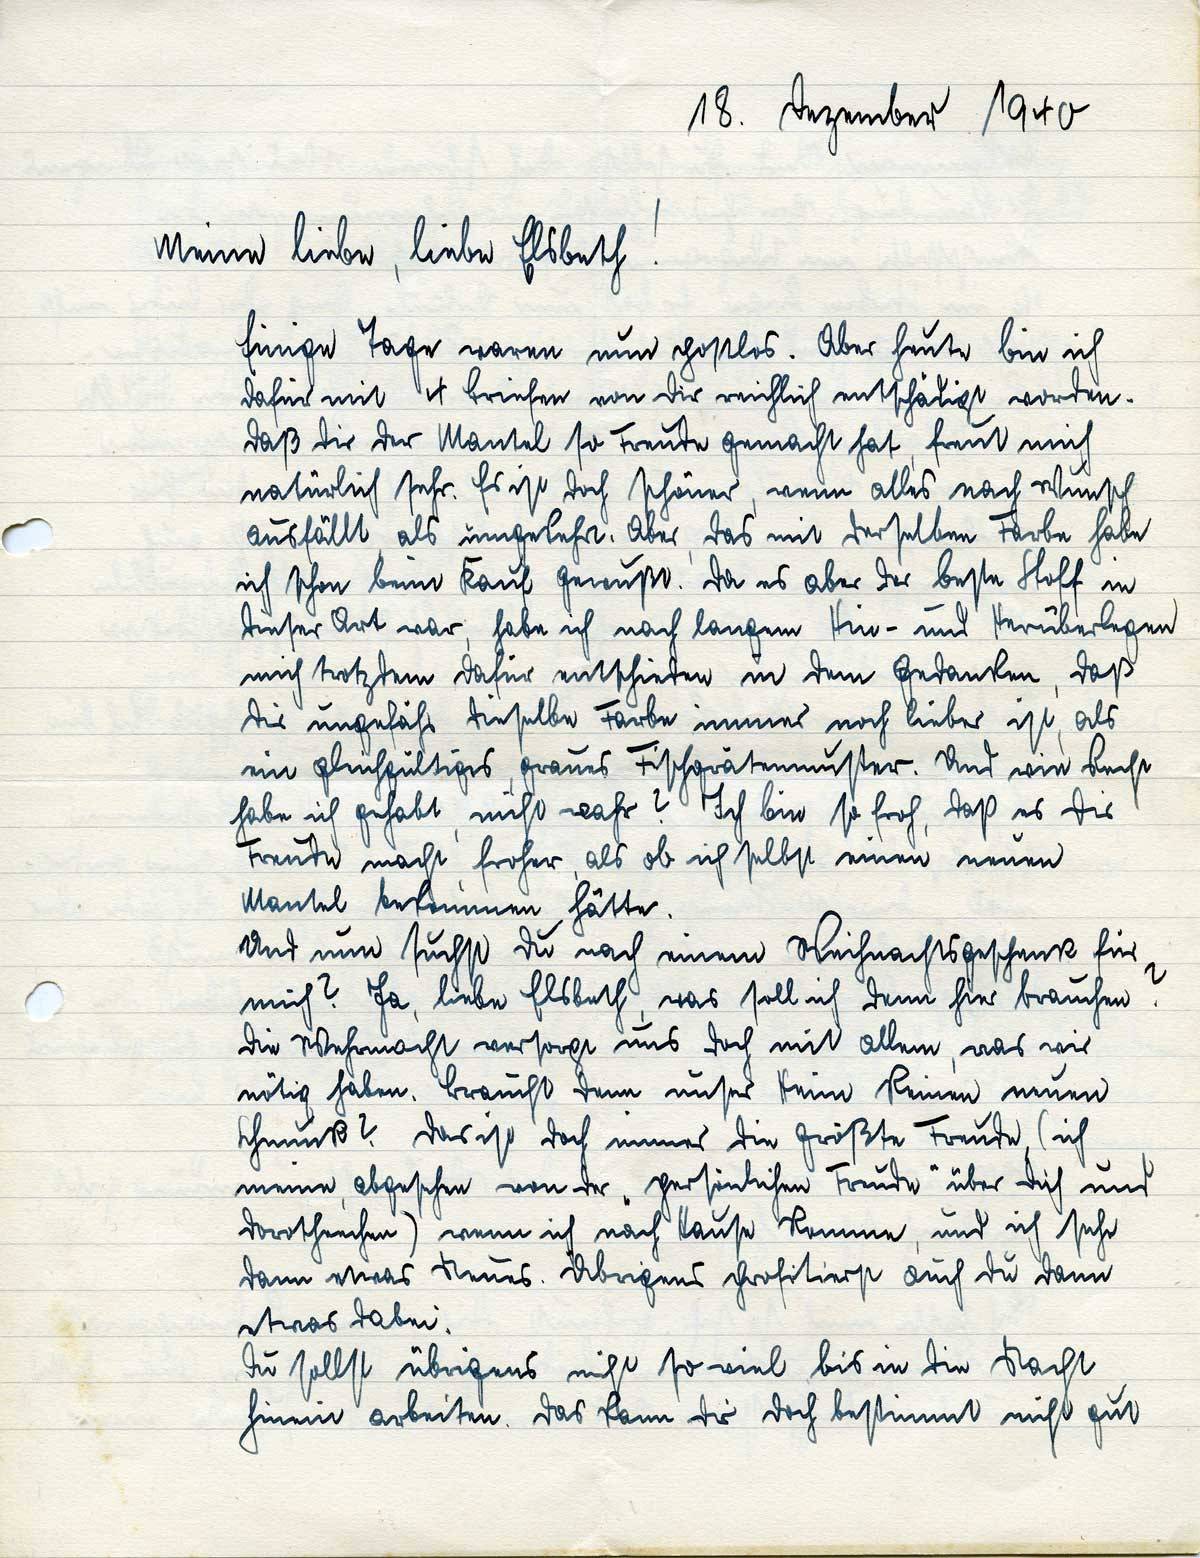 18. Dezember 1940
Meine liebe, liebe Elsbeth!
Einige Tage waren nun postlos. Aber heute bin ich
dafür mit 4 Briefen von Dir reichlich entschädigt worden.
Daß Dir der Mantel so Freude gemacht hat, freut mich
natürlich sehr. Es ist doch schöner, wenn alles nach Wunsch
ausfällt, als umgekehrt. Aber, das mit derselben Farbe habe
ich schon beim Kauf gewußt. Da es aber der beste Stoff in
dieser Art war, habe ich nach langem Hin- und Herüberlegen
mich trotzdem dafür entschieden in dem Gedanken, daß
Dir ungefähr dieselbe Farbe immer noch lieber ist, als
ein gleichgültiges, graues Fischgrätenmuster. Und wie Recht
habe ich gehabt, nicht wahr? Ich bin so froh, daß es Dir
Freude macht, froher, als ob ich selbst einen neuen
Mantel bekommen hätte.
Und nun suchst Du nach einem Weihnachtsgeschenk für
mich? Ja, liebe Elsbeth, was soll ich denn hier brauchen?
Die Wehrmacht versorgt uns doch mit allem, was wir
nötig haben. Braucht denn unser Heim keinen neuen
Schmuck? Das ist doch immer die größte Freude, (ich
meine, abgesehen von der „persönlichen Freude" über Dich und
Dorotheechen) wenn ich nach Hause komme, und ich sehe
dann etwas Neues. Übrigens profitierst auch Du dann
etwas dabei.
Du sollst übrigens nicht so viel bis in die Nacht
hinein arbeiten. Das kann Dir doch bestimmt nicht gut